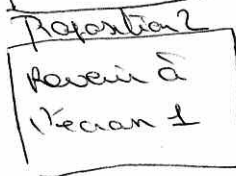 Proposition 2
Revenir à
l'écran 1